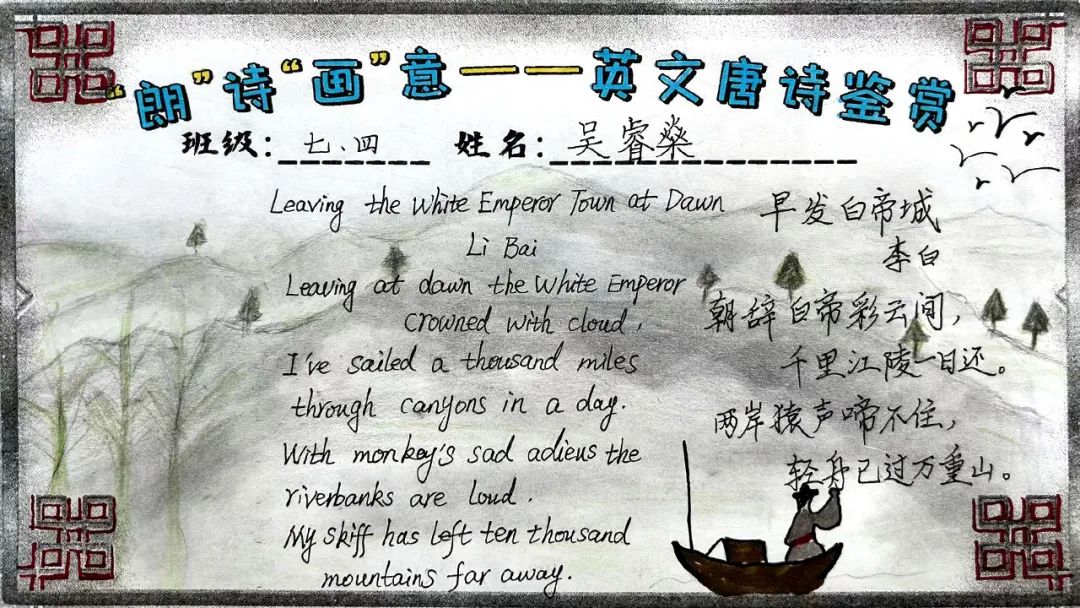 “朗”诗“画”意——英文唐诗鉴赏
班级：七、四 姓名：吴睿燊
Leaving the White Emperor Town at Dawn
Li Bai
Leaving at dawn the White Emperor
crowned with cloud,
I've sailed a thousand miles
through canyons in a day.
With monkey's sad adieus the
riverbanks are loud.
My skiff has left ten thousand
mountains far away.
早发白帝城
李白
朝辞白帝彩云间，
千里江陵一日还。
两岸猿声啼不住，
轻舟已过万重山。